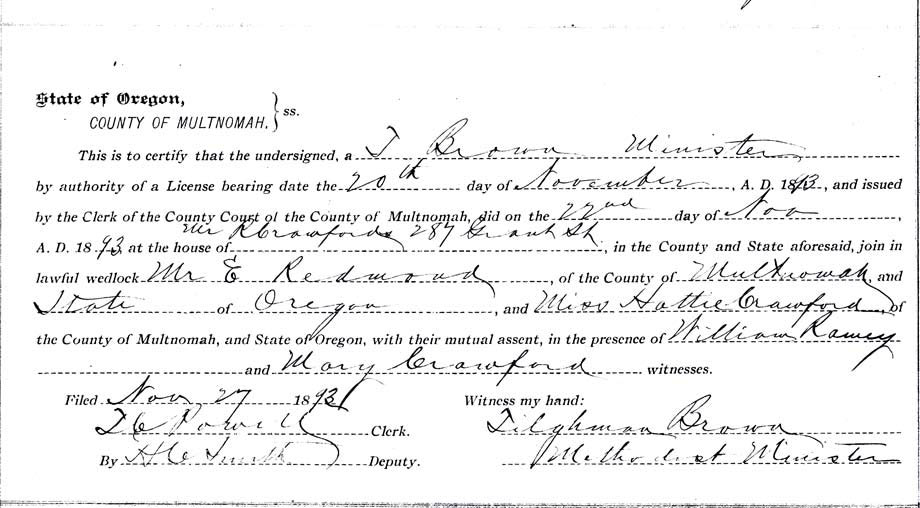 State of Oregon,
COUNTY OF MULTNOMAH. } ss.
This is to certify that the undersigned, a T Brown Minister
by authority of a License bearing date the 20th day of November, A. D. 1893, and issued
by the Clerk of the County Court of the County of Multnomah, did on the 22nd day of Nov,
A. D. 1893 at the house of Mr R Crawfords 287 Grant St, in the County and State aforesaid, join in
lawful wedlock Mr E Redmond, of the County of Multnomah, and
State of Oregon, and Miss Hattie Crawford, of
the County of Multnomah, and State of Oregon, with their mutual assent, in the presence of William Ramey
and Mary Crawford witnesses.
Filed Nov 27 1893 Witness my hand:
T C Powell Clerk. Tilghman Brown
By H C Smith Deputy. Methodist Minister